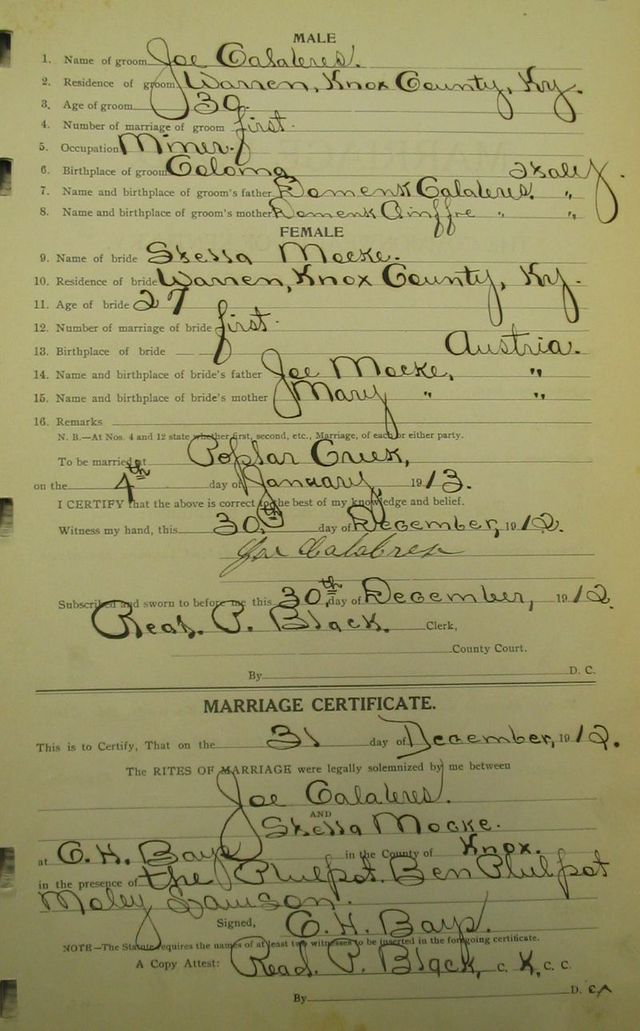 MALE
1. Name of groom Joe Calabres.
2. Residence of groom Warren, Knox County, Ky.
3. Age of groom 30
4. Number of marriage of groom first.
5. Occupation Miner.
6. Birthplace of groom Italy.
7. Name and birthplace of groom's father Calabres. "
8. Name and birthplace of groom's mother " "
FEMALE
9. Name of bride Stella Mocke.
10. Residence of bride Warren, Knox County, Ky.
11. Age of bride 27
12. Number of marriage of bride first.
13. Birthplace of bride Austria.
14. Name and birthplace of bride's father Joe Mocke, "
15. Name and birthplace of bride's mother Mary " "
16. Remarks
N. B.—At Nos. 4 and 12 state whether first, second, etc., Marriage, of each or either party.
To be married at Poplar Creek,
on the 4th day of January, 1913.
I CERTIFY that the above is correct to the best of my knowledge and belief.
Witness my hand, this 30th day of December, 1912.
Joe Calabrese
Subscribed and sworn to before me this 30th day of December, 1912
Read P. Black. Clerk,
County Court.
By D. C.
MARRIAGE CERTIFICATE.
This is to Certify, That on the 31 day of December, 1912.
The RITES OF MARRIAGE were legally solemnized by me between
Joe Calabres.
AND
Stella Mocke.
at G. H. Bays in the County of Knox.
in the presence of the Philpot. Ben Philpot
Signed, G. H. Bays.
NOTE—The Statute requires the names of at least two witnesses to be inserted in the foregoing certificate.
A Copy Attest: Read P. Black, C. K. C. C.
By D. C.